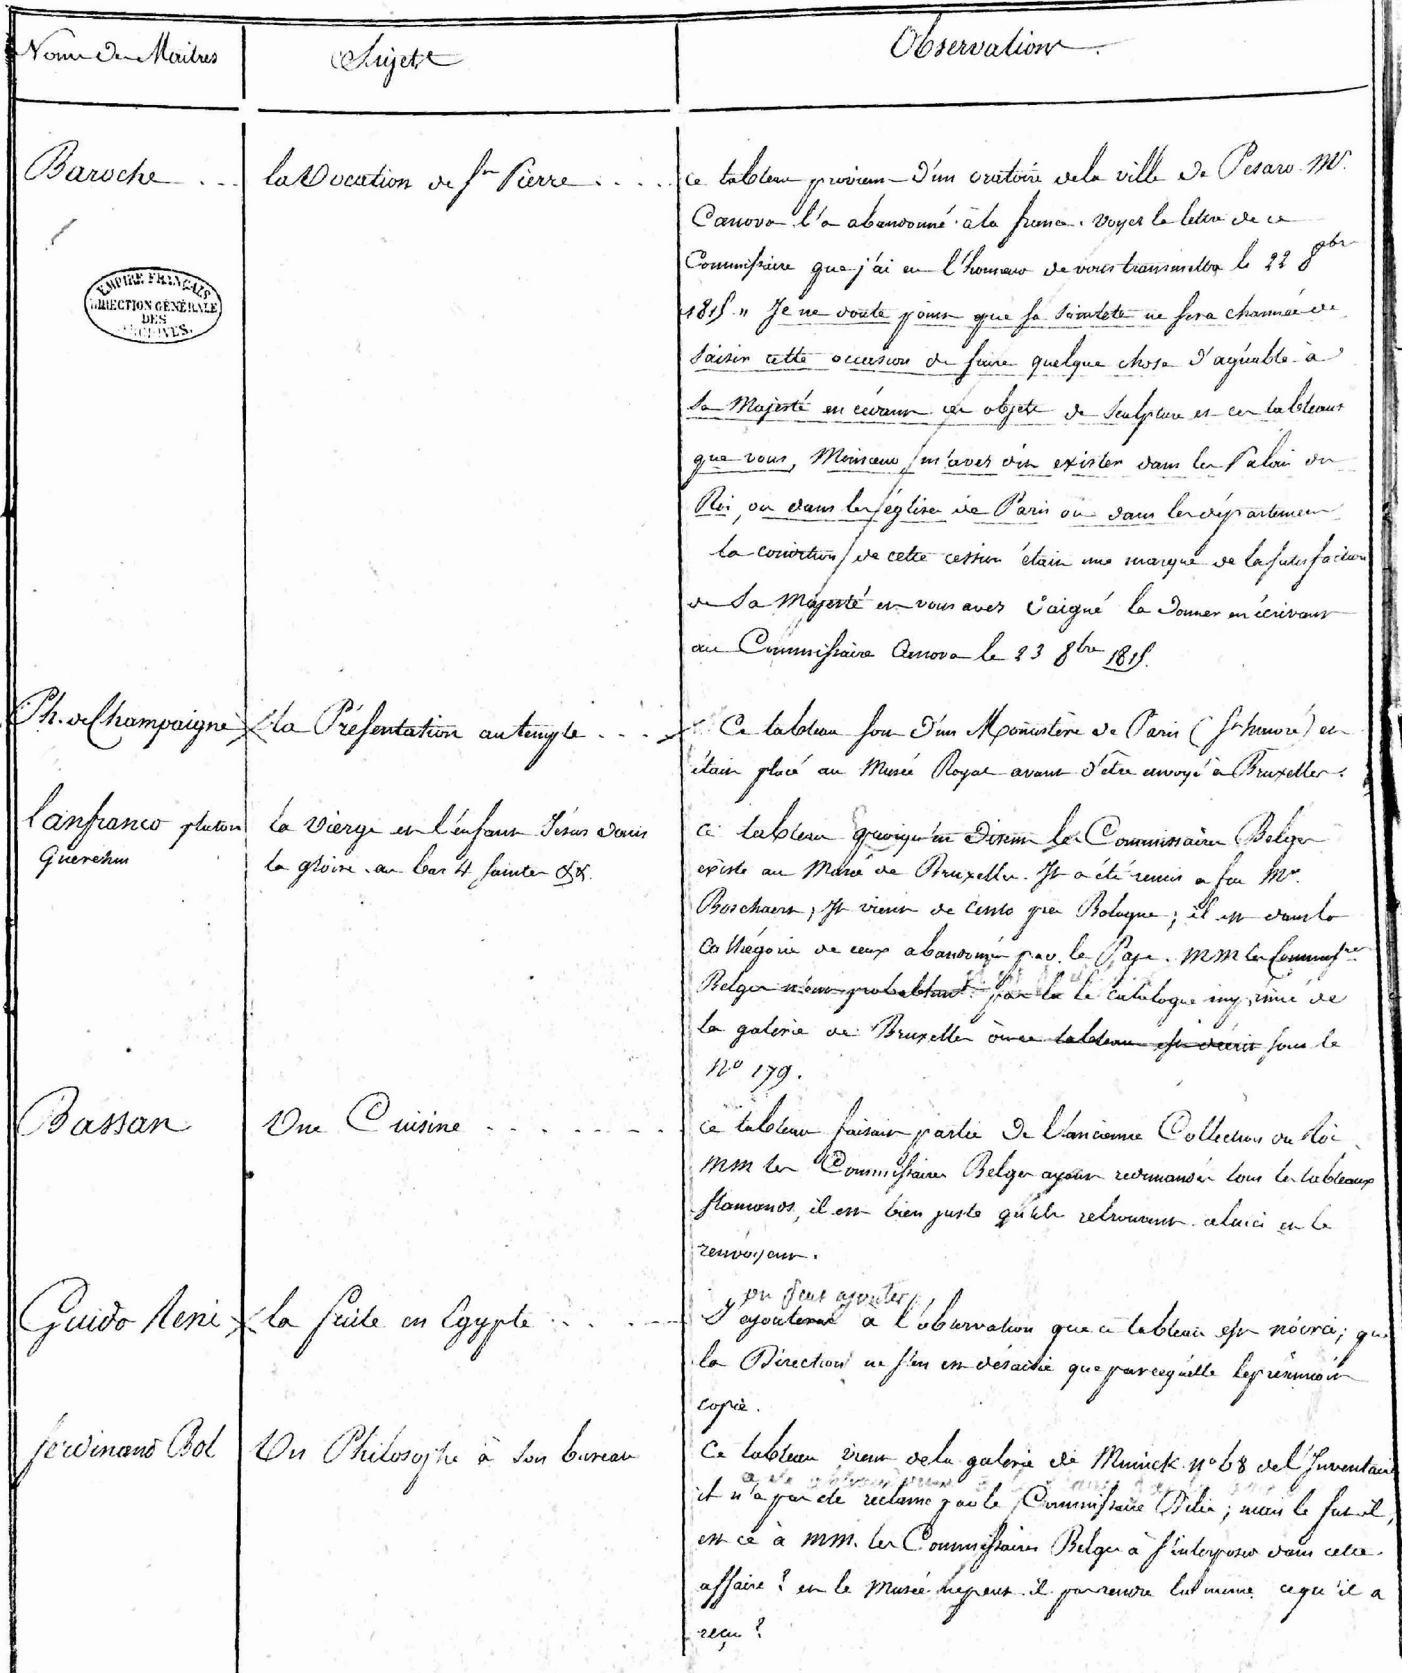 Noms des Maitres
Sujets
Observations
Baroche
la Vocation de St Pierre
ce tableau provient d'un oratoire de la ville de Pesaro. Mr.
Canova l'a abandonné à la france. Voyez la lettre de ce
Commissaire que j'ai eu l'honneur de vous transmettre le 22 8bre
1815. " Je ne doute point que sa Sainteté ne sera charmée de
saisir cette occasion de faire quelque chose d'agréable à
Sa Majesté en cédant ces objets de Sculpture et ces tableaux
que vous, Monsieur, m'avez dit exister dans les Palais du
Roi, ou dans les églises de Paris ou dans les départemens
la condition de cette cession était une marque de la satisfaction
de Sa Majesté et vous avez daigné la donner en écrivant
au Commissaire Canova le 23 8bre 1815.
EMPIRE FRANÇAIS
DIRECTION GÉNÉRALE
DES
ARCHIVES.
Ph. de Champaigne
la Présentation au temple
Ce tableau sort d'un Monastère de Paris (St honoré) et
était placé au Musée Royal avant d'être envoyé à Bruxelles.
Lanfranco plutot
Guerchin
la Vierge et l'enfant Jésus dans
la gloire. au bas 4 saintes &&.
ce tableau quoiqu'en disent les Commissaires Belges
existe au Musée de Bruxelles. Il a été remis a feu Mr.
Boschaert, Il vient de Cento près Bologne; il est dans la
Cathégorie de ceux abandonnés par le Pape. MM les Commissres
Belges n'ont probablemt pas lu le catalogue imprimé de
la galerie de Bruxelles où ce tableau est décrit sous le
No 179.
Bassan
Une Cuisine
ce tableau faisait partie de l'ancienne Collection du Roi
MM les Commissaires Belges ayant redemandés tous les tableaux
flamands, il est bien juste qu'ils retrouvent celuici et le
renvoyent.
Guido Reni
la fuite en Egypte
on peut ajouter
J'ajouterai a l'observation que ce tableau est noirci; que
la Direction ne s'en est désaisie que parcequ'elle le présumoit
copie.
ferdinand Bol
Un Philosophe à son bureau
Ce tableau vient de la galerie de Munick no 68 de l'Inventaire
il n'a pas été reclamé par le Commissaire ; mais le fut-il,
est ce à MM. les Commissaires Belges à s'interposer dans cette
affaire? et le Musée ne peut-il pas rendre lui même ce qu'il a
reçu?